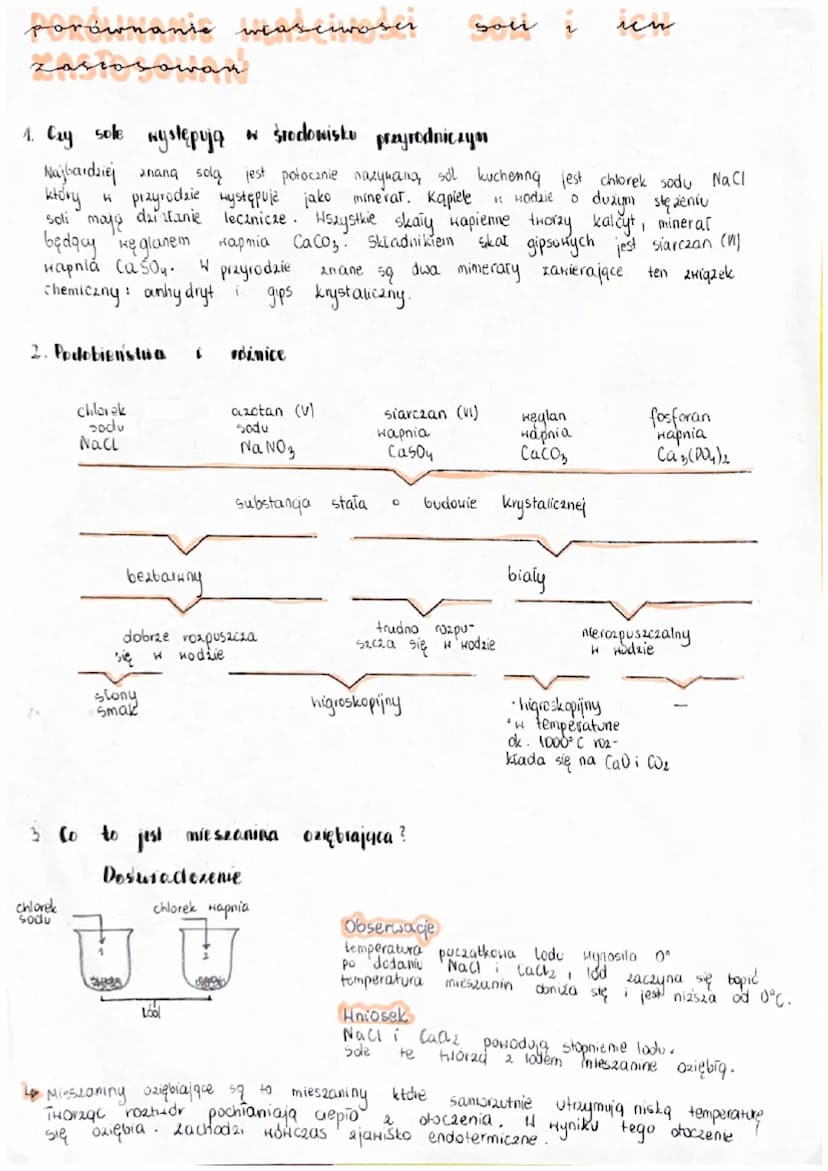 porównanie właściwości soli i ich
zastosowań
1. Czy sole występują w środowisku przyrodniczym
Najbardziej znaną solą jest potocznie nazywaną sól kuchenną jest chlorek sodu NaCl
który w przyrodzie występuje jako minerał. Kąpiele w wodzie o dużym stężeniu
soli mają działanie lecznicze. Wszystkie skały wapienne tworzy kalcyt, minerał
będący węglanem wapnia CaCO3. Składnikiem skał gipsowych jest siarczan (VI)
wapnia CaSO4. W przyrodzie znane są dwa minerały zawierające ten związek
chemiczny: anhydryt i gips krystaliczny.
2. Podobieństwa i różnice
chlorek sodu NaCl
azotan (V) sodu NaNO3
siarczan (VI) wapnia CaSO4
węglan wapnia CaCO3
fosforan wapnia Ca3(PO4)2
substancja stała o budowie krystalicznej
bezbarwny
biały
dobrze rozpuszcza
się w wodzie
trudno rozpu-
szcza się w wodzie
nierozpuszczalny
w wodzie
słony
smak
higroskopijny
· higroskopijny
· w temperaturze
ok. 1000°C roz-
kłada się na CaO i CO2
—
3. Co to jest mieszanina oziębiająca?
Doświadczenie
chlorek
sodu
chlorek wapnia
1
2
Lód
Obserwacje
temperatura początkowa lodu wynosiła 0°
po dodaniu NaCl i CaCl2, lód zaczyna się topić
temperatura mieszanin obniża się i jest niższa od 0°C.
Wniosek
NaCl i CaCl2 powodują stopnienie lodu.
Sole te tworzą z lodem mieszanine oziębią.
↳ Mieszaniny oziębiające są to mieszaniny które samorzutnie utrzymują niską temperaturę
Tworząc roztwór pochłaniają ciepło z otoczenia. W wyniku tego otoczenie
się oziębia. Zachodzi wówczas zjawisko endotermiczne.